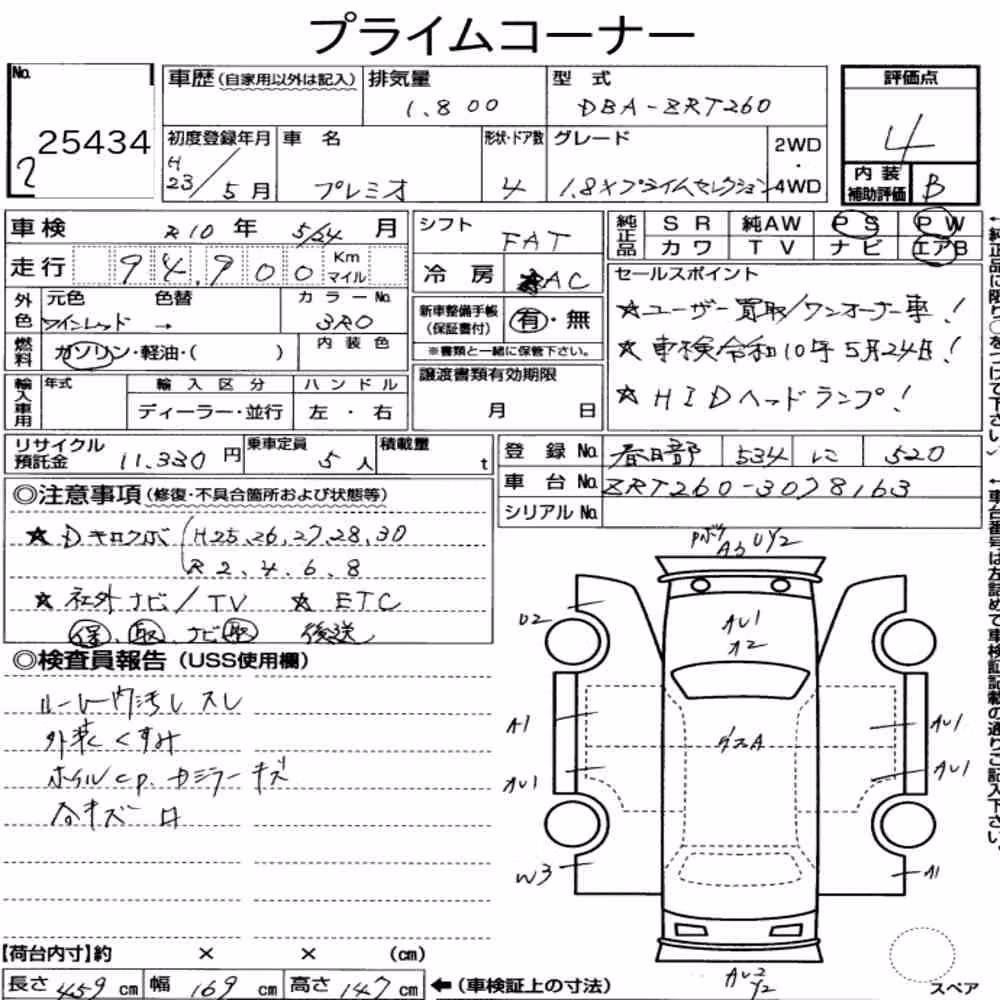 プライムコーナー
No. 25434
2
車歴 (自家用以外は記入)
排気量 1.800
型式 DBA-ZRT260
評価点 4
内装補助評価 B
初度登録年月 H23/5月
車名 プレミオ
形状・ドア数 4
グレード 1.8Xプライムセレクション
2WD・4WD
車検 R10年 5/24月
走行 94,900 Km マイル
シフト FAT
冷房 AC
純正品 SR 純AW PS PW
カワ TV ナビ エアB
外色 元色 ワインレッド 色替 → カラーNo. 3R0
燃料 ガソリン・軽油・( ) 内装色
新車整備手帳(保証書付) 有・無
※書類と一緒に保管下さい。
セールスポイント
★ユーザー買取/ワンオーナー車!
★車検令和10年5月24日!
★HIDヘッドランプ!
輸入車用 年式 輸入区分 ディーラー・並行 ハンドル 左・右
譲渡書類有効期限 月 日
リサイクル預託金 11.330円
乗車定員 5人
積載量 t
登録No. 春日部 534 に 520
車台No. ZRT260-3078163
シリアルNo.
◎注意事項(修復・不具合箇所および状態等)
★Dキロクボ(H25,26,27,28,30
R2,4,6,8
★社外ナビ/TV ★ETC
保、取、ナビ取 後送
◎検査員報告(USS使用欄)
ルーム内汚レスレ
外装くすみ
ホイルcp.カミラーキズ
←純正品に限り○をつけて下さい。
←車台番号は左詰めで車検証記載の通りご記入下さい。
A3 UY2
U2
AU1
A2
A1
AU1
ガラスA
AU1
AU1
W3
A1
AU2
Y2
スペア
【荷台内寸】約 × × (cm)
長さ 459 cm 幅 169 cm 高さ 147 cm ←(車検証上の寸法)